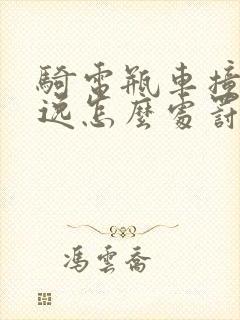 騎電瓶車撞
逸怎麼處罰
馮雲喬